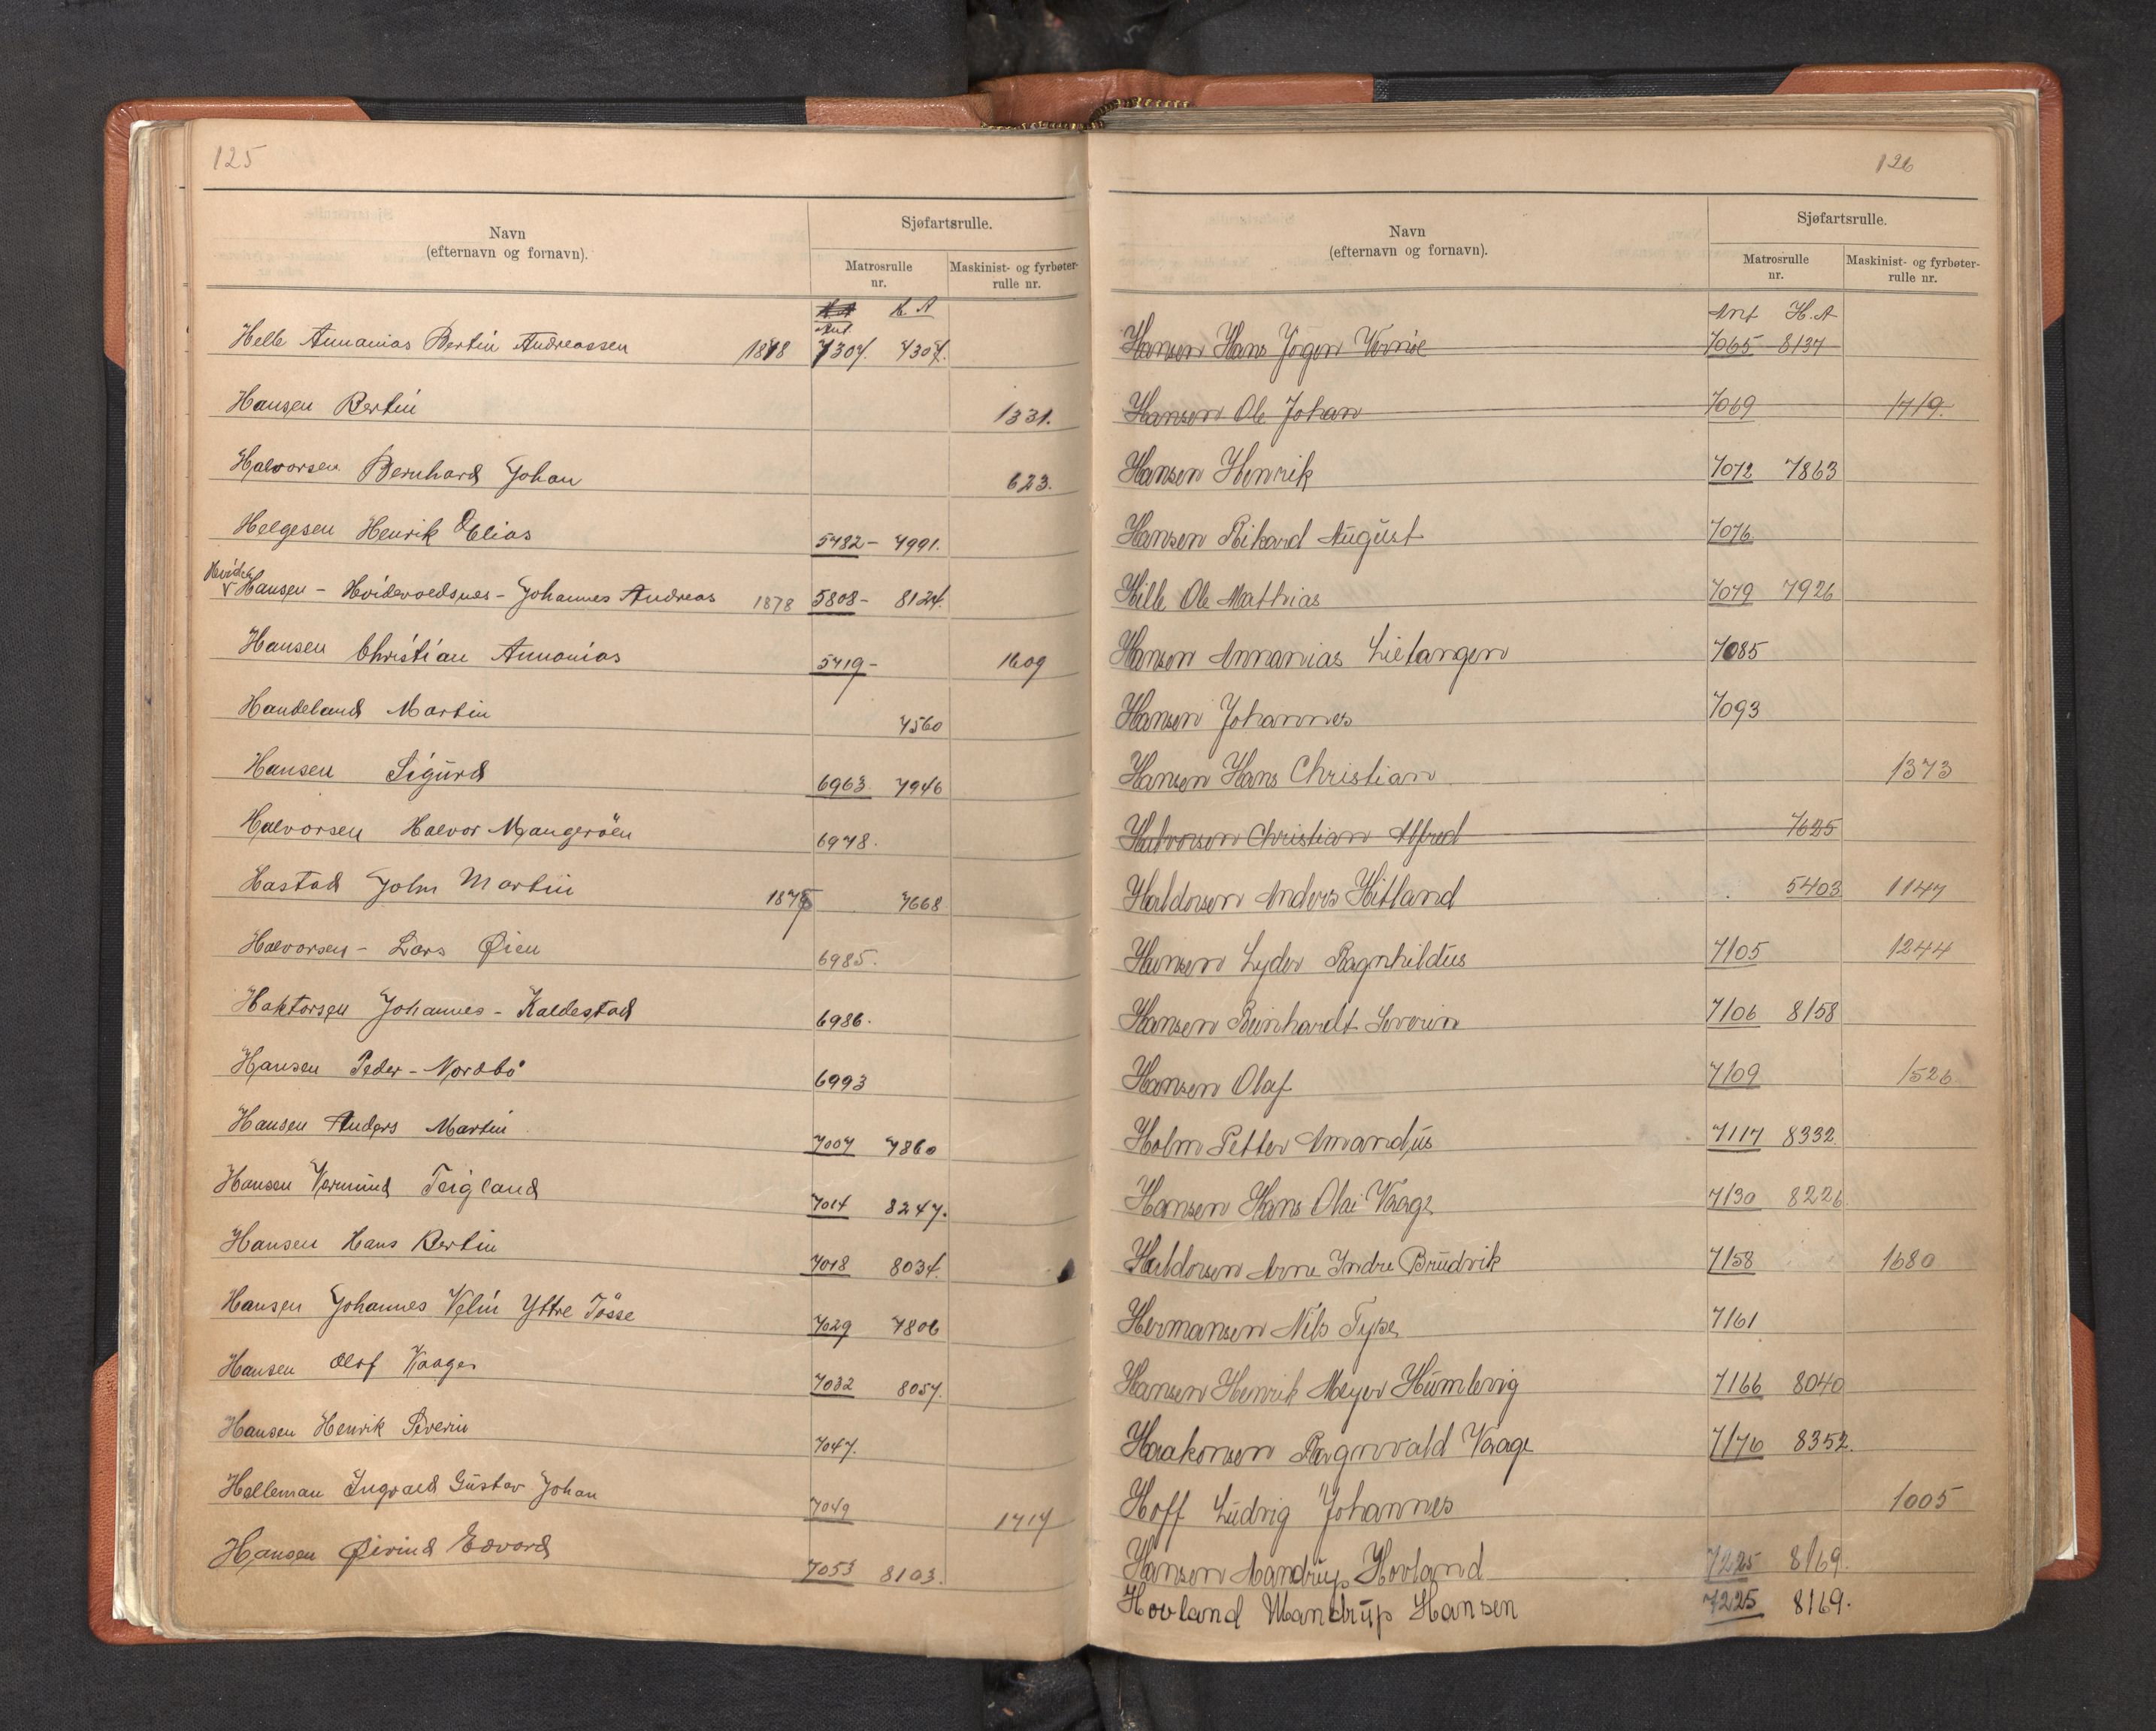 125
Navn
(efternavn og fornavn).
Sjøfartsrulle.
Matrosrulle
nr.
Maskinist- og fyrbøter-
rulle nr.
H. A
Ant.
Helle Annanias Bertin Andreassen 1878 7307. 7307.
Hansen Bertin 1331.
Halvorsen Bernhard Johan 623.
Helgesen Henrik Elias 5782 - 7991.
Hansen - Hvidevoldsnes - Johannes Andreas 1878 5808 - 8124.
Hansen Christian Annanias 5719 - 1609
Handeland Martin 7560
Hansen Sigurd 6963 7946
Halvorsen Halvor Mangerøen 6978.
Hastad John Martin 1878 7668
Halvorsen - Lars Øien 6985.
Haktorsen Johannes - Kaldestad 6986.
Hansen Peder - Nordbø 6993
Hansen Anders Martin 7007 7860
Hansen Vermund Teigland 7014 8247.
Hansen Hans Bertin 7018 8034.
Hansen Johannes Velin Yttre Tösse 7029 7806
Hansen Olaf Vaage 7032 8057.
Hansen Henrik Severin 7047.
Helleman Ingvald Gustav Johan 7049 1717
Hansen Øivind Edvard 7053 8103.
126
Navn
(efternavn og fornavn).
Sjøfartsrulle.
Matrosrulle
nr.
Maskinist- og fyrbøter-
rulle nr.
Ant H. A
Hansen Hans Jørgen Vernøe 7065 8137
Hansen Ole Johan 7069 1719.
Hansen Henrik 7072 7863
Hansen Rikard August 7076
Hille Ole Mathias 7079 7926
Hansen Annanias Lietangen 7085
Hansen Johannes 7093
Hansen Hans Christian 1373
Halvorsen Christian Alfred 7625
Haldorsen Anders Hitland 5403 1147
Hansen Lyder Ragnhildus 7105 1244
Hansen Reinhardt Severin 7106 8158
Hansen Olaf 7109 1526
Holm Petter Amandus 7117 8332
Hansen Hans Olai Vaage 7130 8226
Haldorsen Arne Indre Brudvik 7158 1680
Hermansen Nils 7161
Hansen Henrik Meyer Humlevig 7166 8040
Haakonsen Ragnvald Vaage 7176 8352.
Hoff Ludvig Johannes 1005
Hansen Mandrup Hovland 7225 8169.
Hovland Mandrup Hansen 7225 8169.